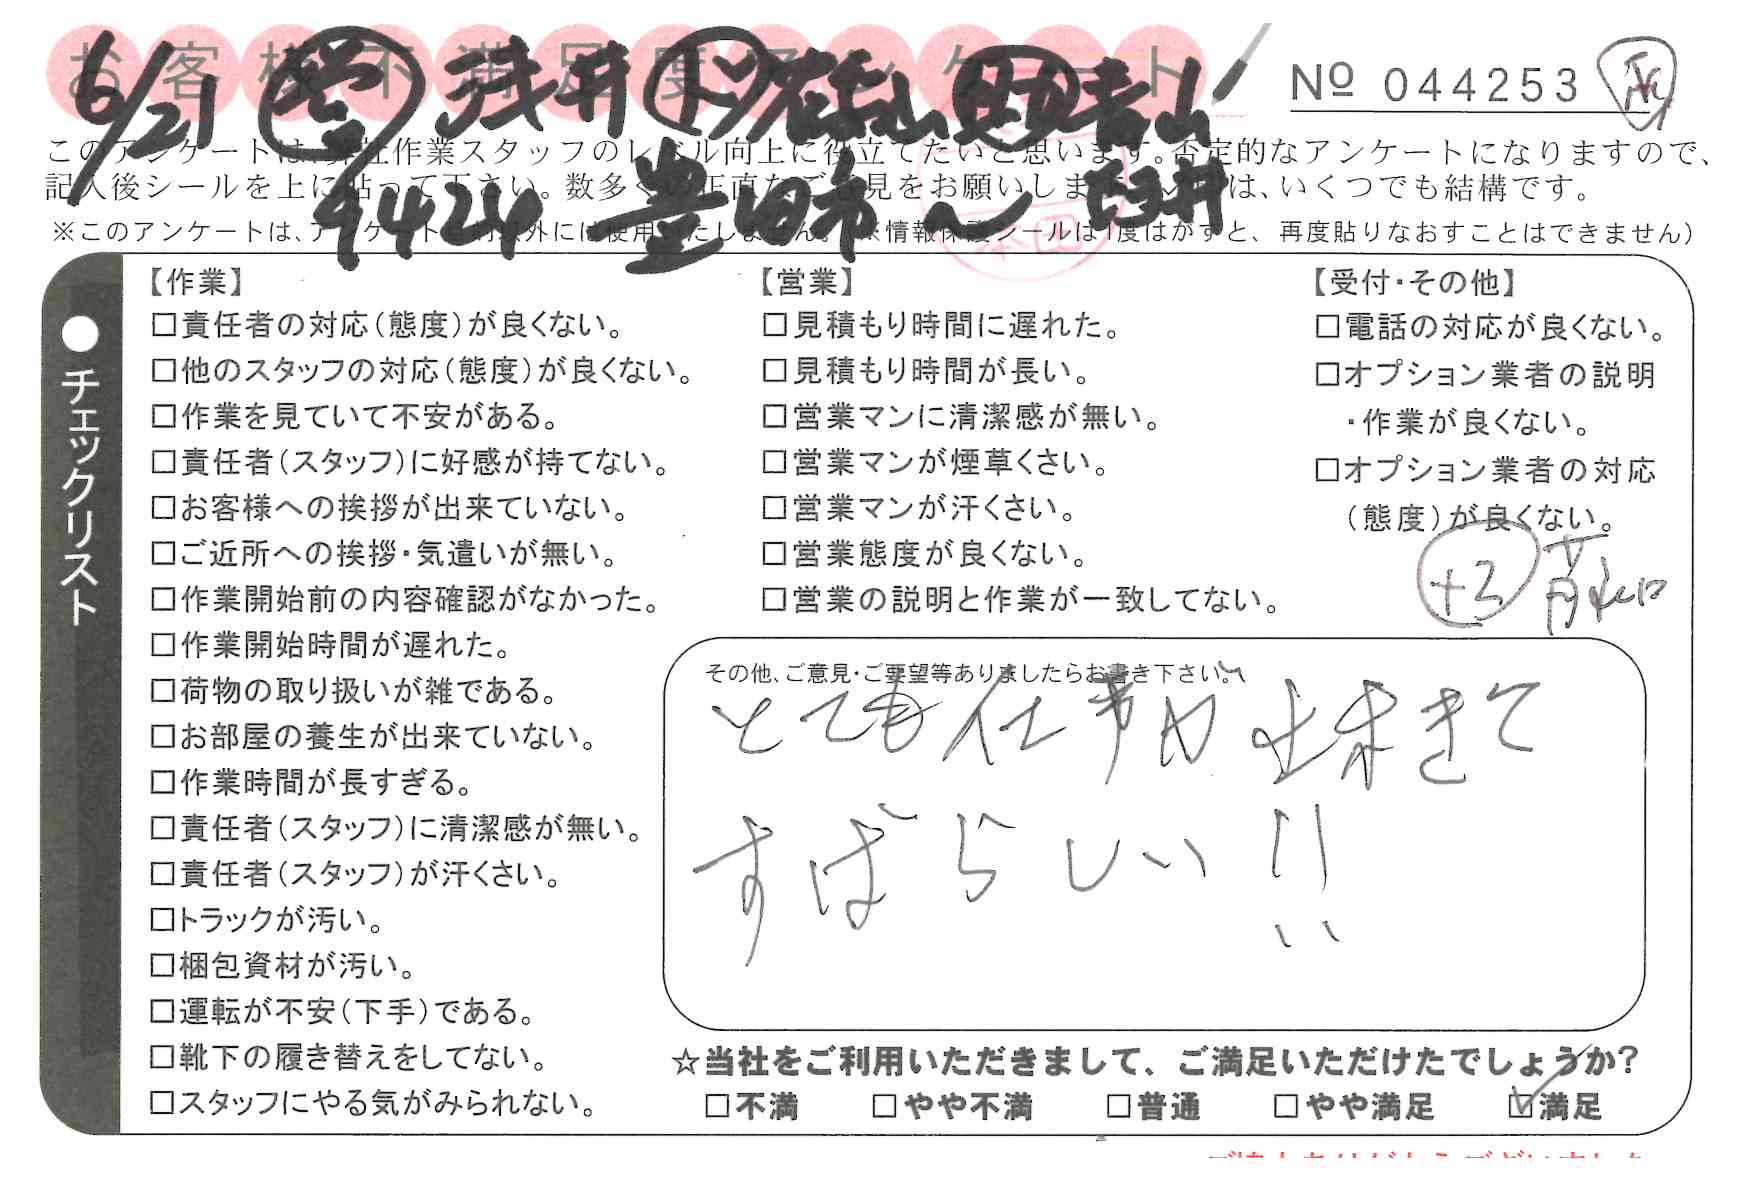 お客様不満足度アンケート
6/21 営 浅井 トツ 石山 妙 青山
№ 044253
このアンケートは、弊社作業スタッフのレベル向上に役立てたいと思います。否定的なアンケートになりますので、
記入後シールを上に貼って下さい。数多くの正直なご意見をお願いします。
は、いくつでも結構です。
9424 豊田市 〜
※このアンケートは、アンケート目的以外には使用いたしません。
※情報保護シールは1度はがすと、再度貼りなおすことはできません)
本田
●チェックリスト
【作業】
□責任者の対応(態度)が良くない。
□他のスタッフの対応(態度)が良くない。
□作業を見ていて不安がある。
□責任者(スタッフ)に好感が持てない。
□お客様への挨拶が出来ていない。
□ご近所への挨拶・気遣いが無い。
□作業開始前の内容確認がなかった。
□作業開始時間が遅れた。
□荷物の取り扱いが雑である。
□お部屋の養生が出来ていない。
□作業時間が長すぎる。
□責任者(スタッフ)に清潔感が無い。
□責任者(スタッフ)が汗くさい。
□トラックが汚い。
□梱包資材が汚い。
□運転が不安(下手)である。
□靴下の履き替えをしてない。
□スタッフにやる気がみられない。
【営業】
□見積もり時間に遅れた。
□見積もり時間が長い。
□営業マンに清潔感が無い。
□営業マンが煙草くさい。
□営業マンが汗くさい。
□営業態度が良くない。
□営業の説明と作業が一致してない。
【受付・その他】
□電話の対応が良くない。
□オプション業者の説明
・作業が良くない。
□オプション業者の対応
(態度)が良くない。
+3
その他、ご意見・ご要望等ありましたらお書き下さい。
とても仕事が出来きて
すばらしい!!
☆当社をご利用いただきまして、ご満足いただけたでしょうか?
□不満 □やや不満 □普通 □やや満足 ☑満足
ご協力ありがとうございました